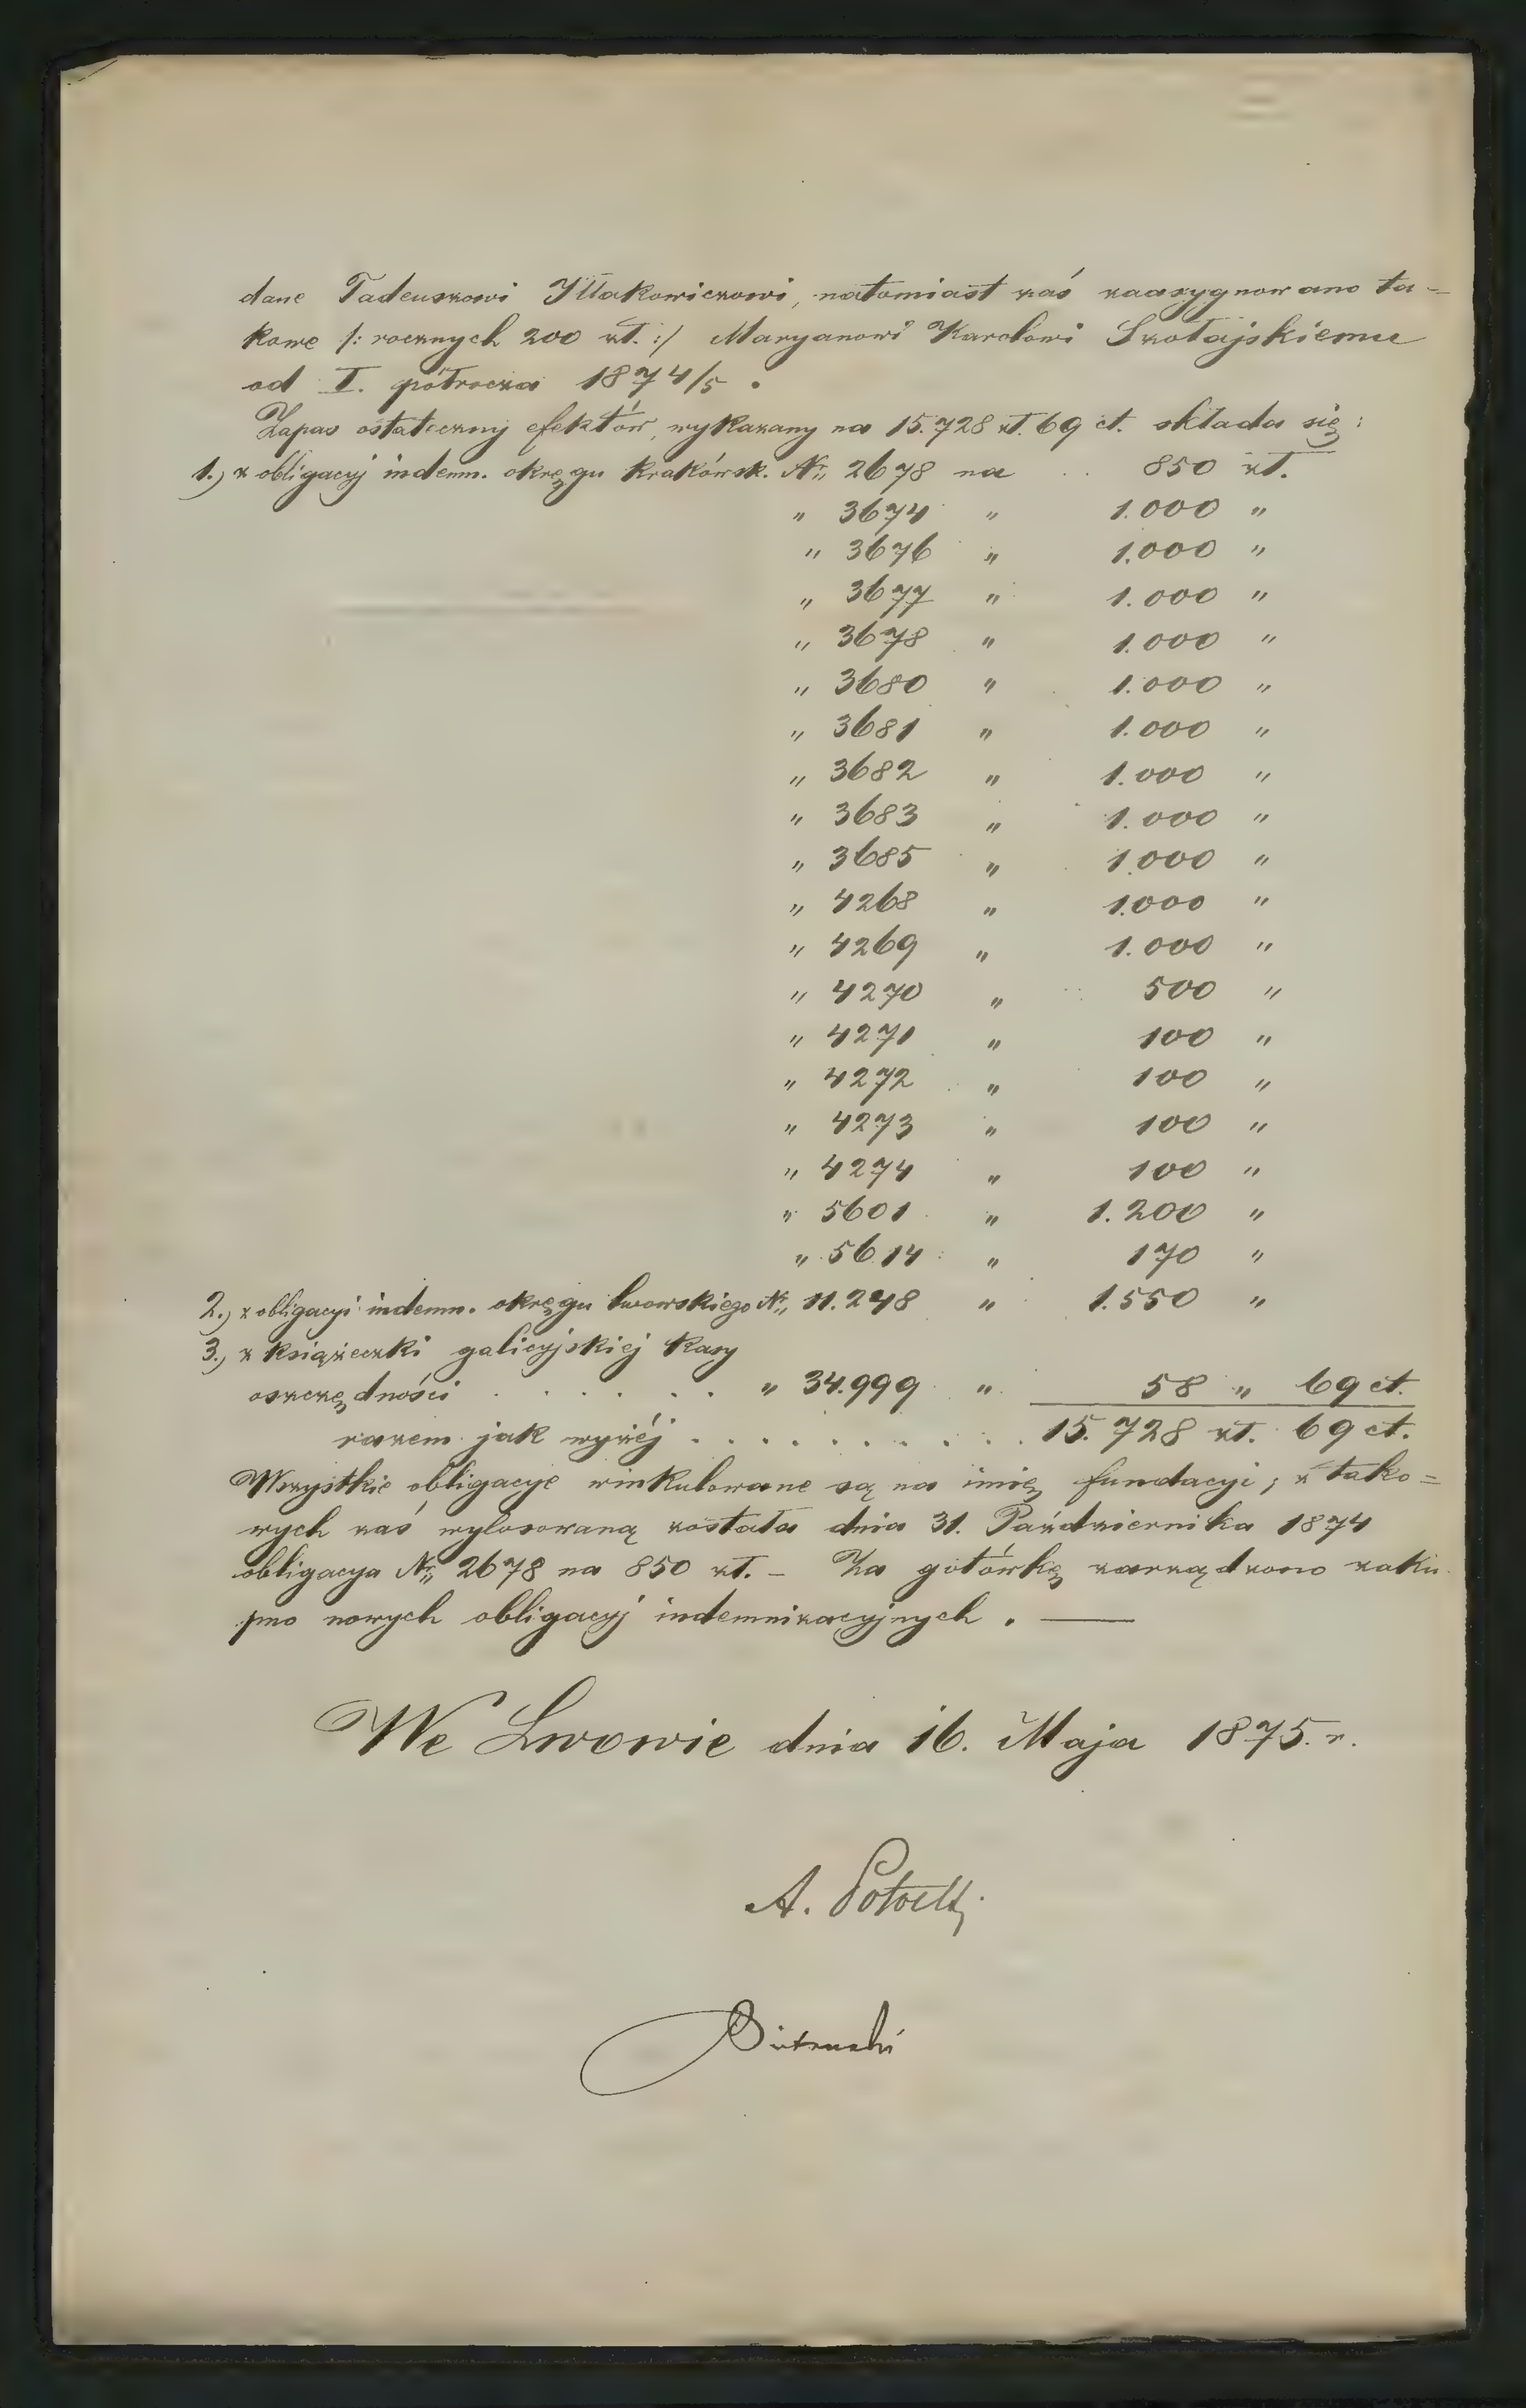 dane Tadeuszowi Iłłakowiczowi, natomiast zaś zaasygnowano ta-
kowe /: rocznych 200 zł. :/ Maryanowi Karolowi Szołajskiemu
od I. półrocza 1874/5.
Zapas ostateczny efektów, wykazany na 15.728 zł. 69 ct. składa się:
1.) z obligacyj indemn. okręgu krakówsk. Nr. 2678 na 850 zł.
" 3674 " 1.000 "
" 3676 " 1.000 "
" 3677 " 1.000 "
" 3678 " 1.000 "
" 3680 " 1.000 "
" 3681 " 1.000 "
" 3682 " 1.000 "
" 3683 " 1.000 "
" 3685 " 1.000 "
" 4268 " 1.000 "
" 4269 " 1.000 "
" 4270 " 500 "
" 4271 " 100 "
" 4272 " 100 "
" 4273 " 100 "
" 4274 " 100 "
" 5601 " 1.200 "
" 5614 " 170 "
2.) z obligacyi indemn. okręgu lwowskiego Nr. 11.248 " 1.550 "
3.) z książeczki galicyjskiej kasy
oszczędności . . . . . . " 34.999 " 58 " 69 ct.
razem jak wyżéj . . . . . . . . . . . 15.728 zł. 69 ct.
Wszystkie obligacye winkulowane są na imię fundacyi; z tako=
wych zaś wylosowaną została dnia 31. Października 1874
obligacya Nr. 2678 na 850 zł. – Za gotówkę zarządzono zaku
pno nowych obligacyj indemnizacyjnych. —
We Lwowie dnia 16. Maja 1875. r.
A. Potocki
Pietruski